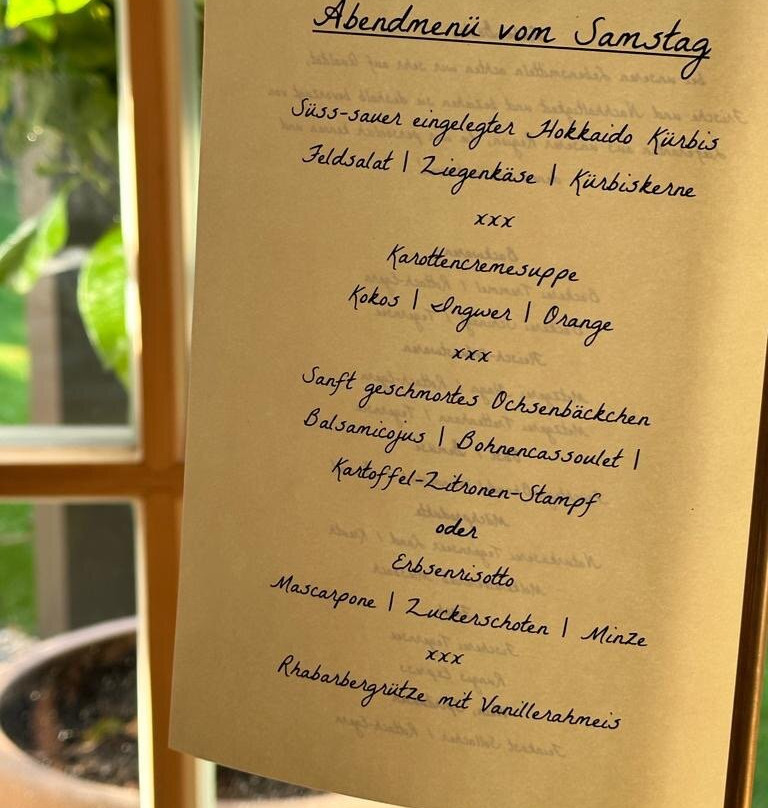 Abendmenü vom Samstag
Süss-sauer eingelegter Hokkaido Kürbis
Feldsalat | Ziegenkäse | Kürbiskerne
xxx
Karottencremesuppe
Kokos | Ingwer | Orange
xxx
Sanft geschmortes Ochsenbäckchen
Balsamicojus | Bohnencassoulet |
Kartoffel-Zitronen-Stampf
oder
Erbsenrisotto
Mascarpone | Zuckerschoten | Minze
xxx
Rhabarbergrütze mit Vanillerahmeis